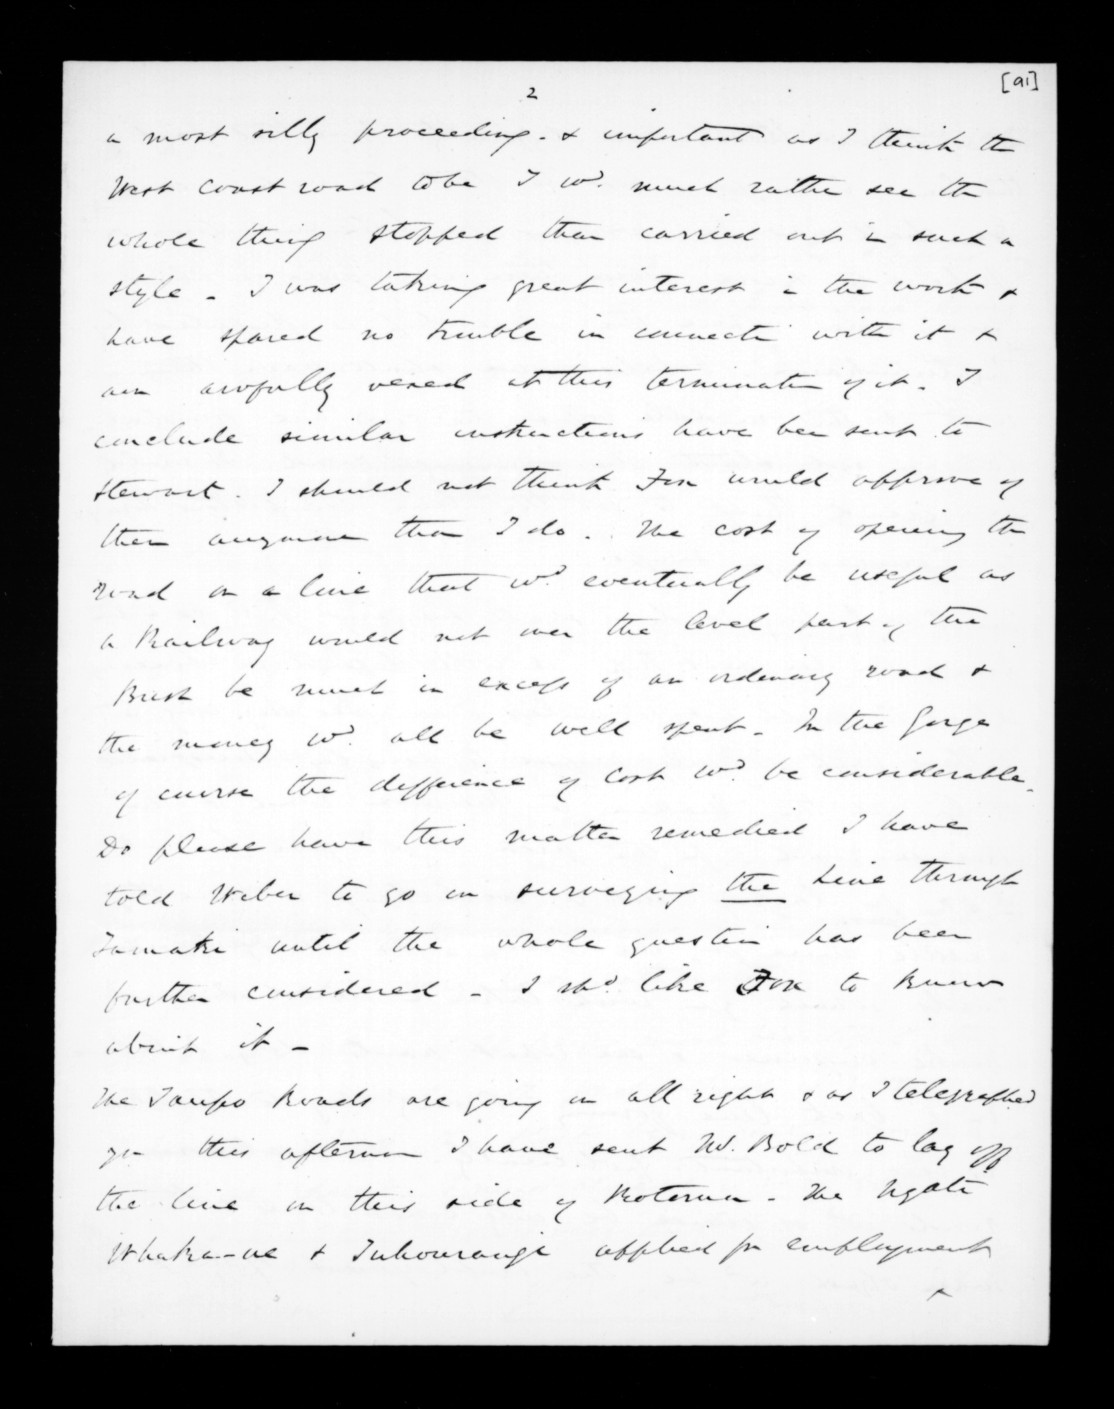 [91]
2
a most silly proceeding. & important as I think the
West Coast road to be I wd. much rather see the
whole thing stopped than carried out in such a
style - I was taking great interest in the work &
have spared no trouble in connecti with it &
am awfully vexed at this termination of it. I
conclude similar instructions have been sent to
Stewart. I should not think Fox would approve of
them anymore than I do. The cost of opening the
road on a line that wd. eventually be useful as
a Railway would not over the level part of the
Bush be much in excess of an ordinary road &
the money wd. all be well spent. In the Gorge
of course the difference of cost wd. be considerable.
Do please have this matter remedied I have
told Weber to go on surveying the line through
Tamaki until the whole question has been
further considered - I shd. like Fox to know
about it -
The Taupo Roads are going on all right & as I telegraphed
you this afternoon I have sent Bold to lay off
the line on this side of Rotorua. The Ngati
Whaka-ue & Tuhourangi applied for employment